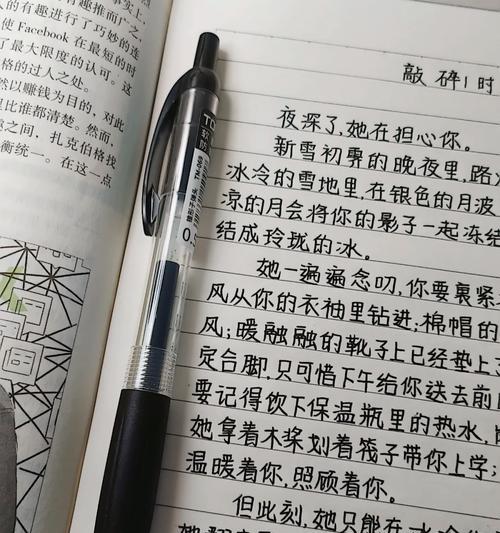 事实上,
有趣推而广之
人的有趣进行了巧妙的连
使 Facebook 在最短的时
了最大限度的认可。这
格的过人之处。
然以赚钱为目的,对此
里比谁都清楚。然而
之间,扎克伯格找
衡统一。在这一点
敲碎1时
夜深了,她在担心你。
新雪初霁的晚夜里,路
冰冷的雪地里,在银色的月波
凉的月会将你的影子一起冻结
结成玲珑的冰。
她一遍遍念叨,你要裹紧
风从你的衣袖里钻进;棉帽的
风;暖融融的靴子上已经垫上
定合脚,只可惜下午给你送去前
要记得饮下保温瓶里的热水,
她拿着木桨划着筏子带你上学;
温暖着你,照顾着你。
但此刻,她只能在冰冷